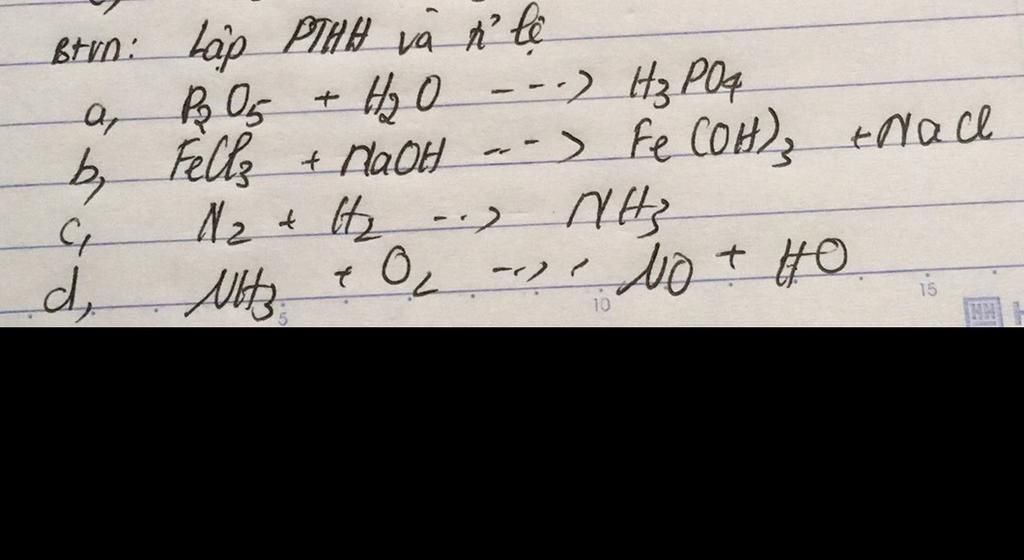 Btvn: Lập PTHH và tỉ lệ
a, P2O5 + H2O ---> H3PO4
b, FeCl3 + NaOH ---> Fe(OH)3 + NaCl
c, N2 + H2 ---> NH3
d, NH3 + O2 ---> NO + HO
5 10 15
HH H